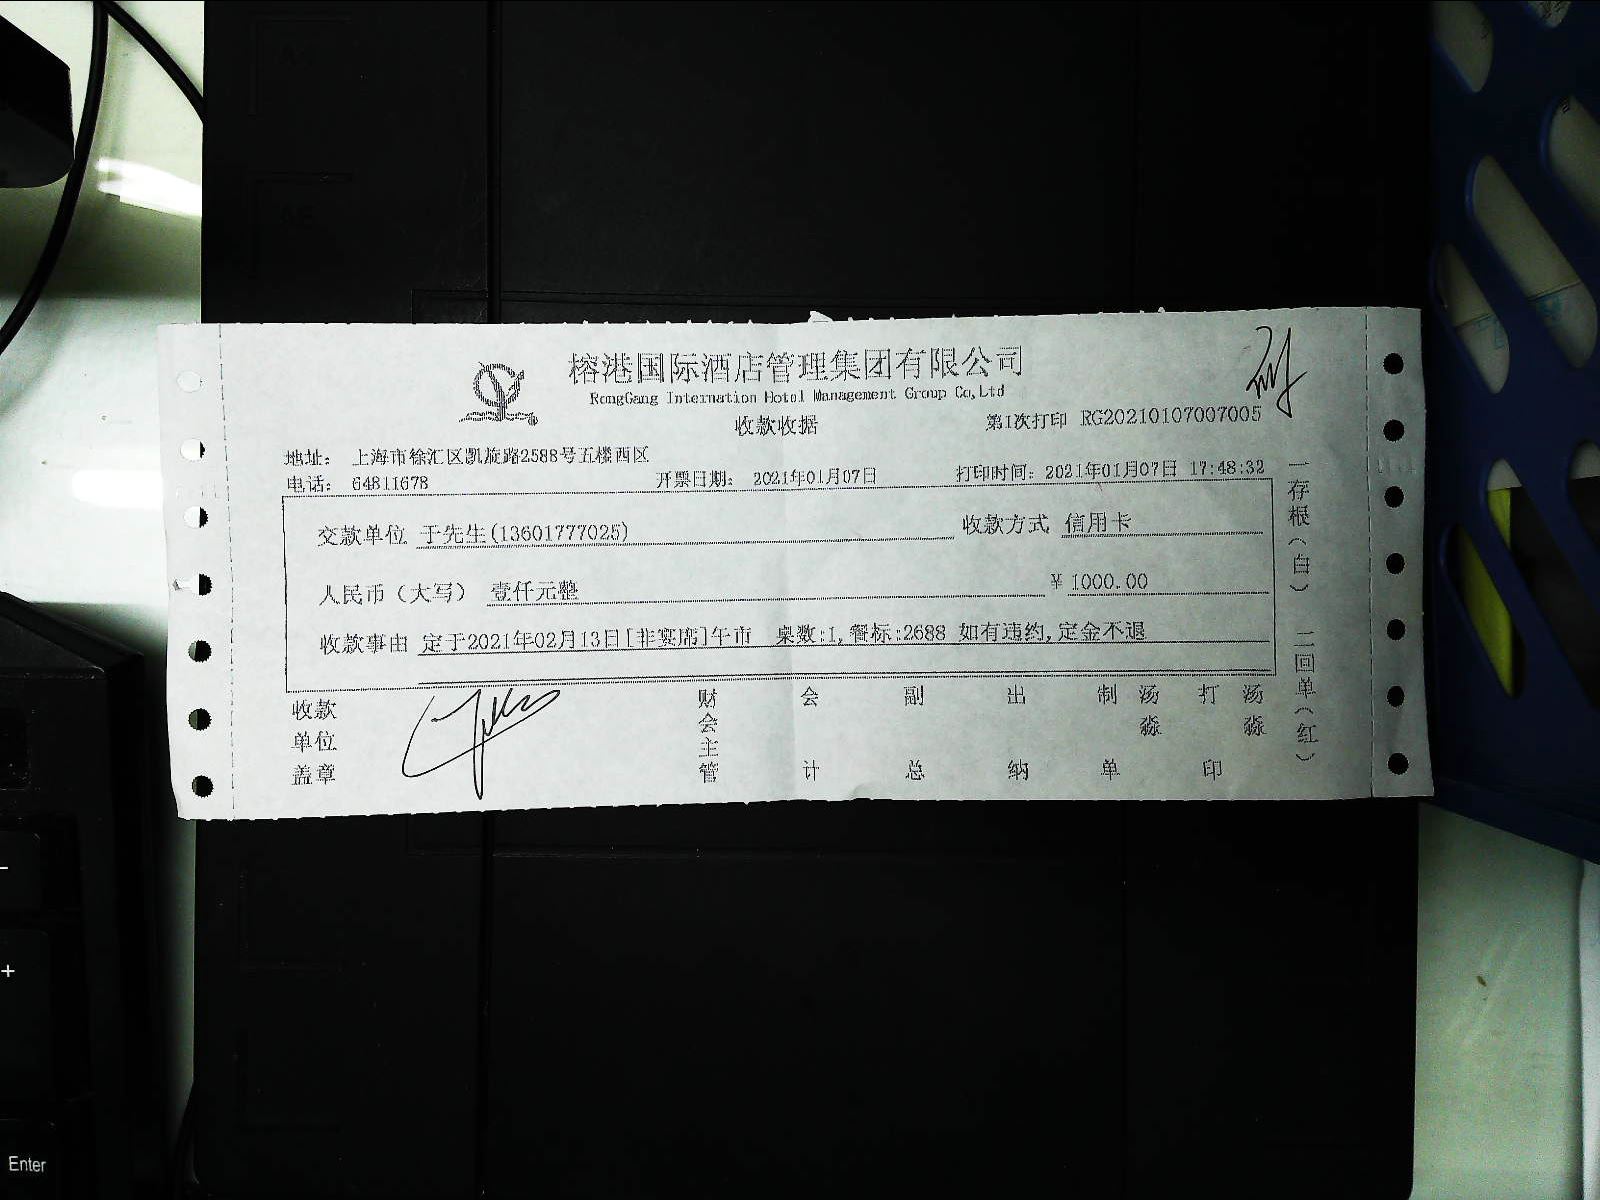 榕港国际酒店管理集团有限公司
RongGang Internation Hotol Management Group Co,Ltd
收款收据
第1次打印 RG20210107007005
地址： 上海市徐汇区凯旋路2588号五楼西区
电话： 64811678
开票日期： 2021年01月07日
打印时间：2021年01月07日 17:48:32
交款单位 于先生(13601777025)
收款方式 信用卡
人民币（大写） 壹仟元整
¥ 1000.00
收款事由 定于2021年02月13日[非宴席]午市 桌数:1,餐标:2688 如有违约,定金不退
收款单位盖章
财会主管
会计
副总
出纳
制单 汤淼
打印 汤淼
一存根（白） 二回单（红）
-
+
Enter